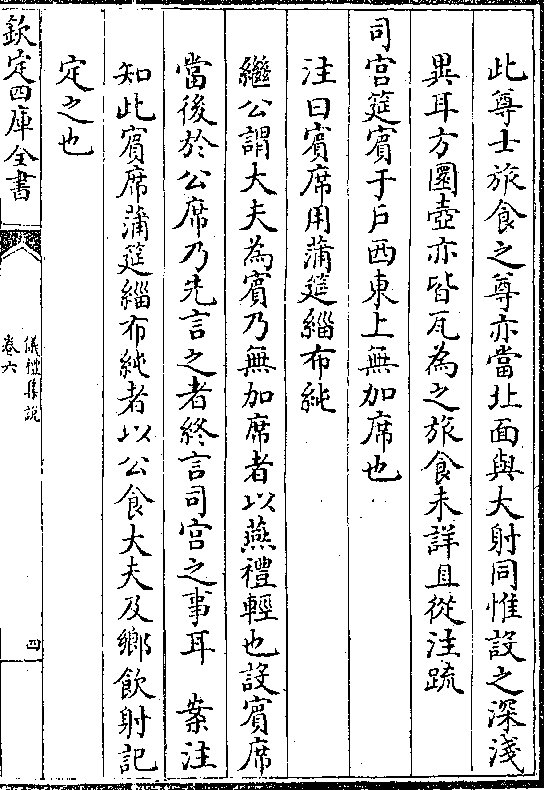 此尊士旅食之尊亦當北面與大射同惟設之深淺
異耳方圜壺亦皆瓦為之旅食未詳且從注疏
司宫筵賓于戶西東上無加席也
注曰賓席用蒲筵緇布純
繼公謂大夫為賓乃無加席者以燕禮輕也設賓席
當後於公席乃先言之者終言司宫之事耳　案注
知此賓席蒲筵緇布純者以公食大夫及鄉飲射記
定之也
欽定四庫全書
儀禮集說
卷六
四